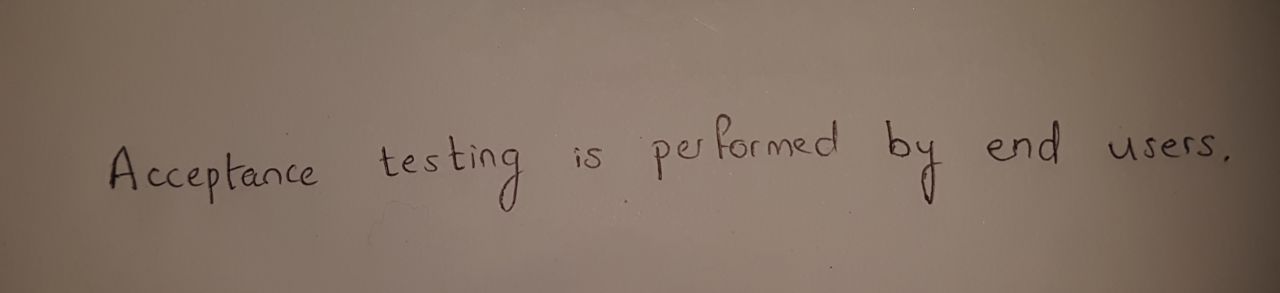 Acceptance testing is performed by end users.